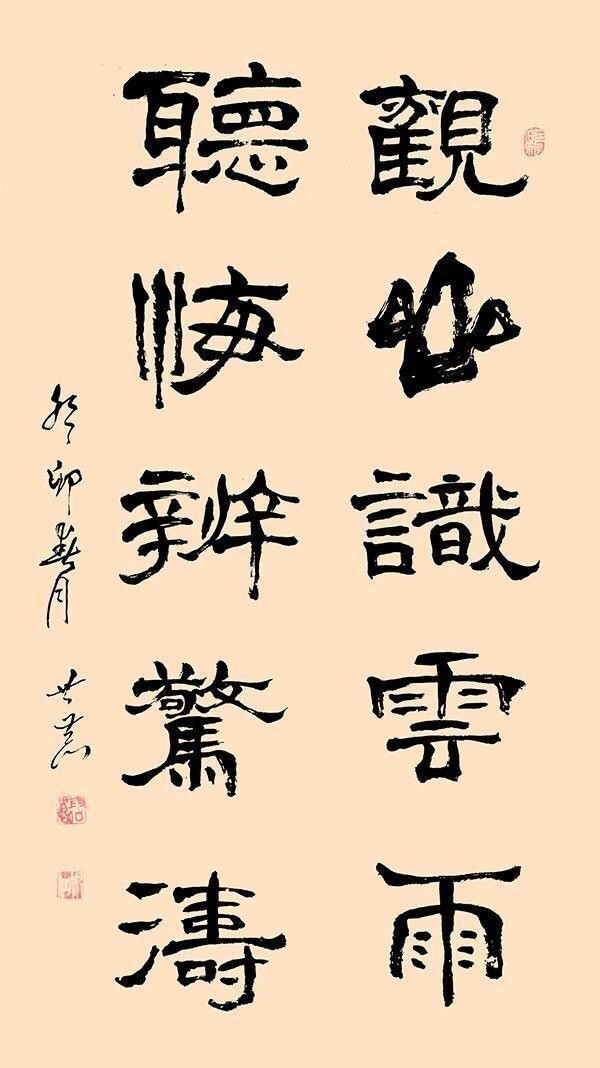 觀山識雲雨
聽海辨驚濤
癸卯春月